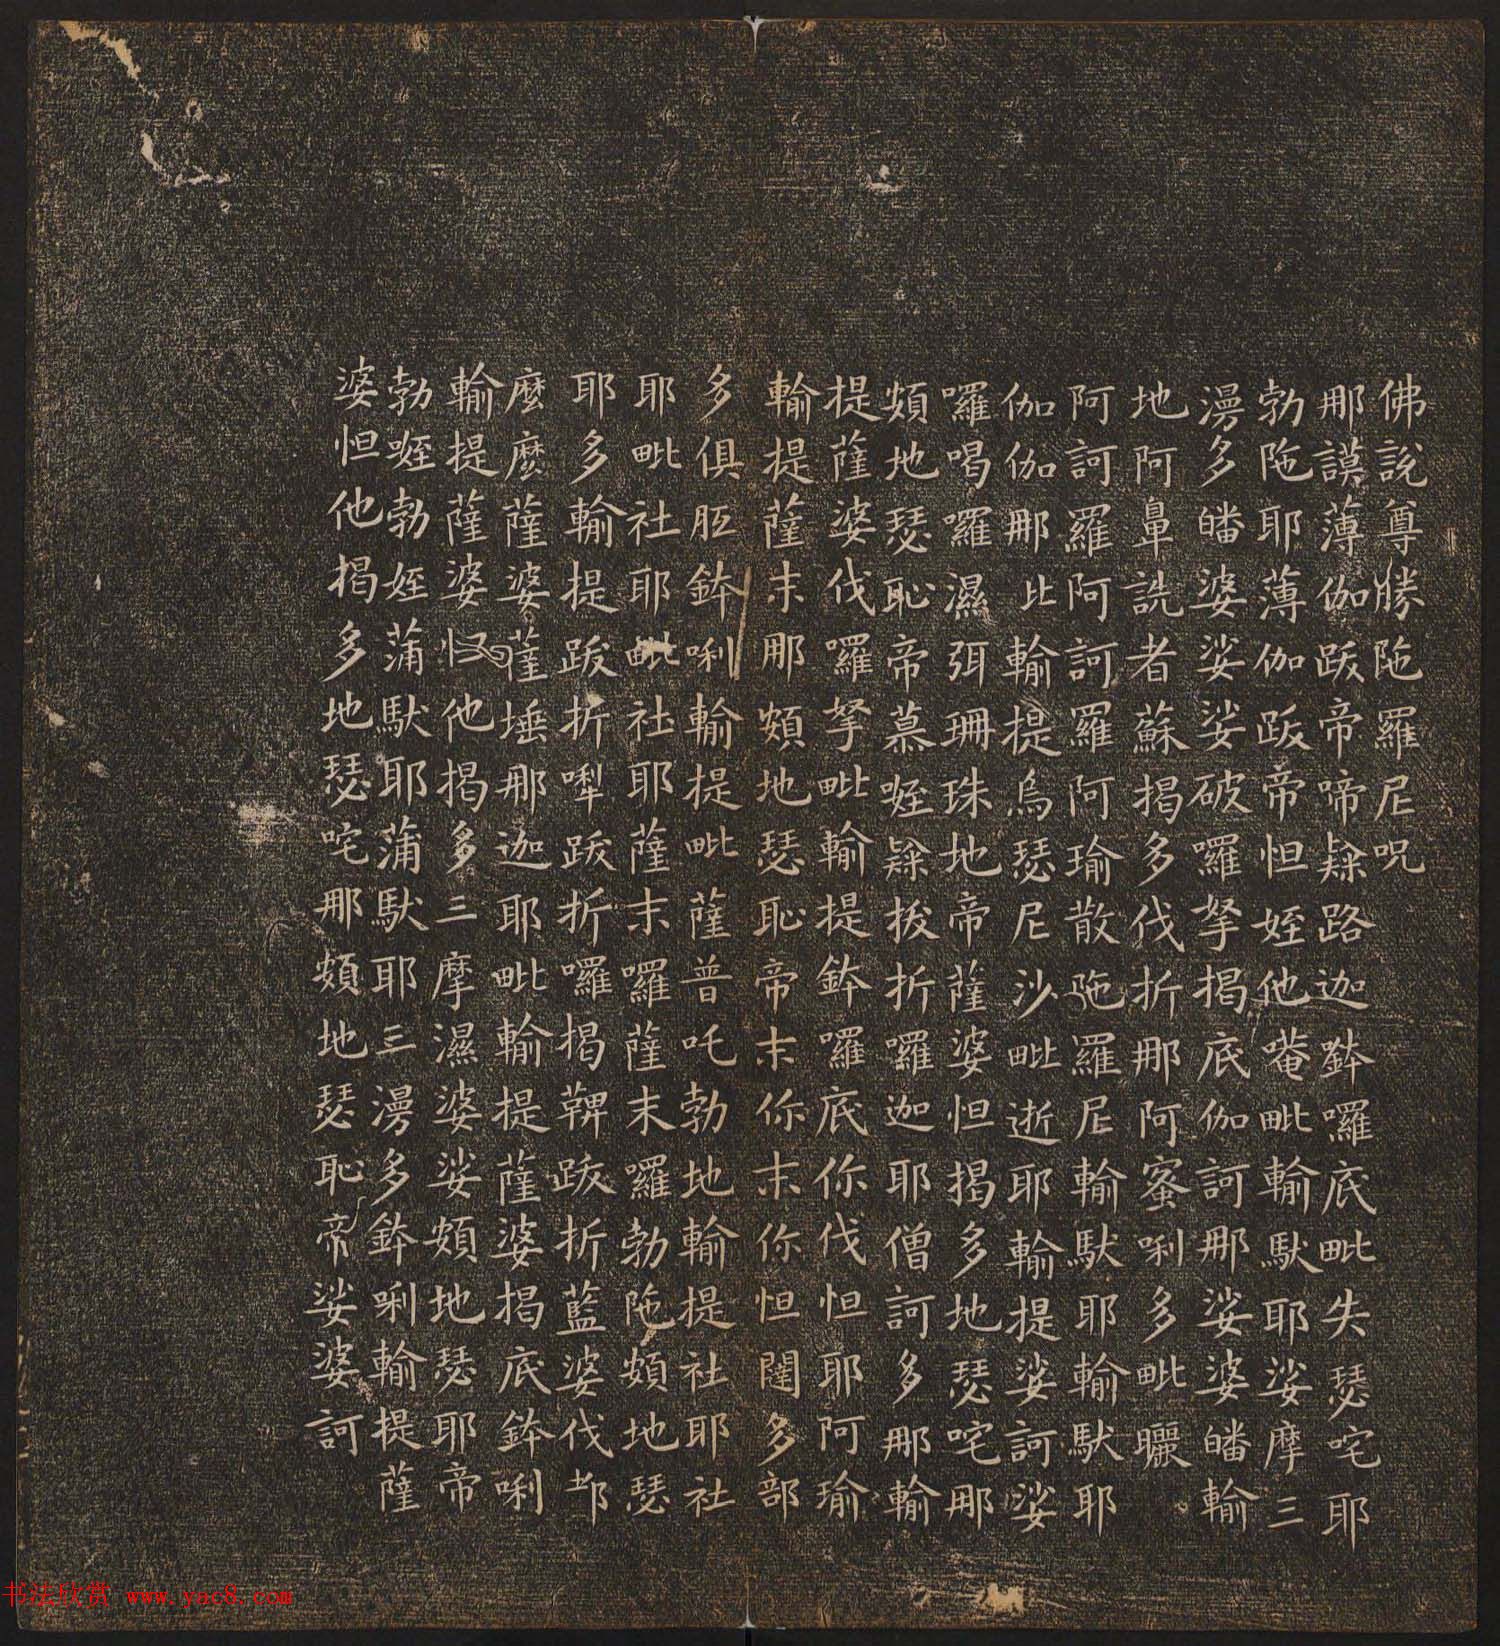 佛說尊勝陁羅尼呪
那謨薄伽跋帝啼㘑路迦鉢囉底毗失瑟咤耶
勃陁耶薄伽跋帝怛姪他唵毗輸馱耶娑摩三
漫多皤婆娑娑破囉拏揭底伽訶那娑婆皤輸
地阿鼻詵者蘇揭多伐折那阿蜜唎多毗曬
阿訶羅阿訶羅阿瑜散陁羅尼輸馱耶輸馱耶
伽伽那比輸提烏瑟尼沙毗逝耶輸提娑訶娑
囉喝囉濕弭珊珠地帝薩婆怛揭多地瑟咤那
頞地瑟恥帝慕㘑拔折囉迦耶僧訶多那輸
提薩婆伐囉拏毗輸提鉢囉底你伐怛耶阿瑜
輸提薩末那頞地瑟恥帝末你末你怛闥多部
多俱胝鉢唎輸提毗薩普吒勃地輸提社耶社
耶毗社耶毗社耶薩末囉薩末囉勃陁頞地瑟
耶多輸提跋折犁跋折囉揭鞞跋折藍婆伐都
麼麼薩婆薩埵那迦耶毗輸提薩婆揭底鉢唎
輸提薩婆怛他揭多三摩濕婆娑頞地瑟耶帝
勃㗌勃姪蒲馱耶蒲馱耶三漫多鉢唎輸提薩
婆怛他揭多地瑟咤那頞地瑟恥帝娑婆訶
书法欣赏 www.yac8.com